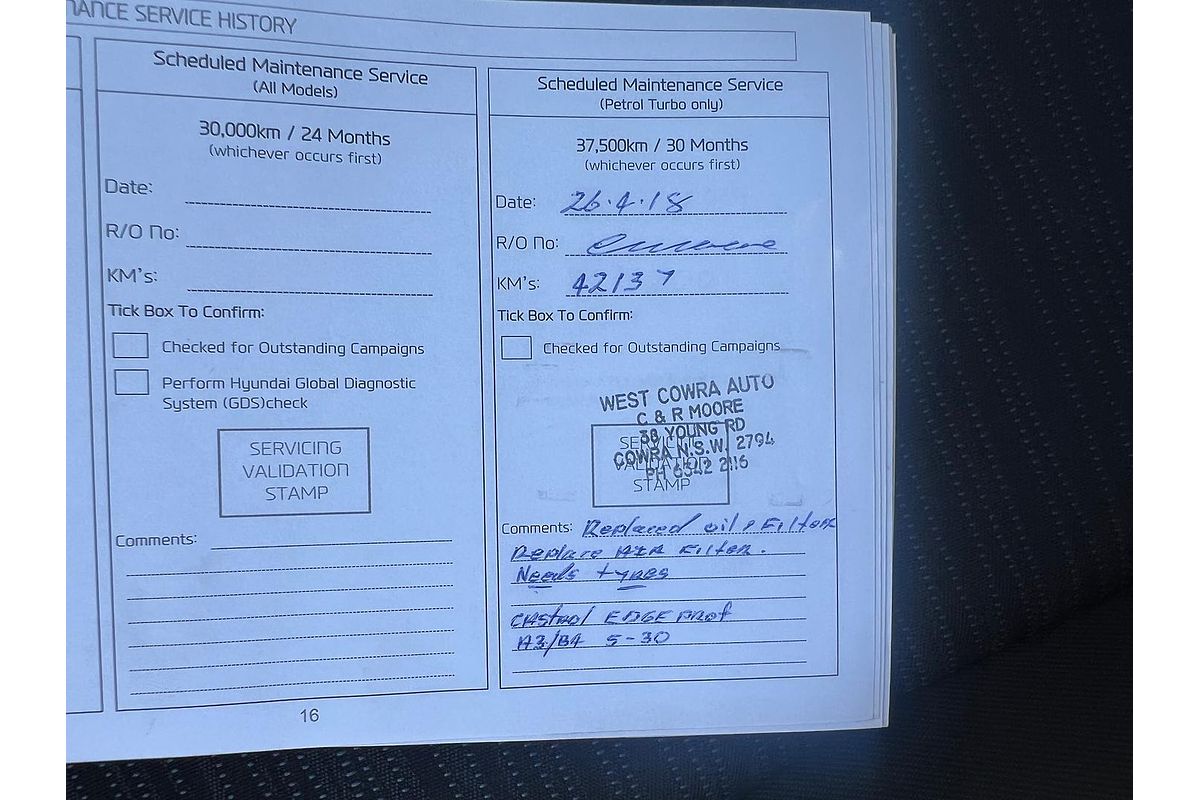 NANCE SERVICE HISTORY
Scheduled Maintenance Service
(All Models)
30,000km / 24 Months
(whichever occurs first)
Date:
R/O No:
KM's:
Tick Box To Confirm:
Checked for Outstanding Campaigns
Perform Hyundai Global Diagnostic
System (GDS)check
SERVICING
VALIDATION
STAMP
Comments:
16
Scheduled Maintenance Service
(Petrol Turbo only)
37,500km / 30 Months
(whichever occurs first)
Date: 26.4.18
R/O No:
KM's: 42137
Tick Box To Confirm:
Checked for Outstanding Campaigns
WEST COWRA AUTO
C & R MOORE
38 YOUNG RD
COWRA N.S.W. 2794
PH 6342 2116
SERVICING
VALIDATION
STAMP
Comments: Replaced oil & Filter
Replace AIR Filter.
Needs tyres
CAstrol EDGE PROF
A3/B4 5-30